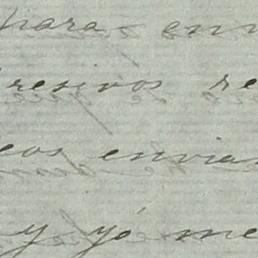 para en
resivos re
eos envia
y yó me